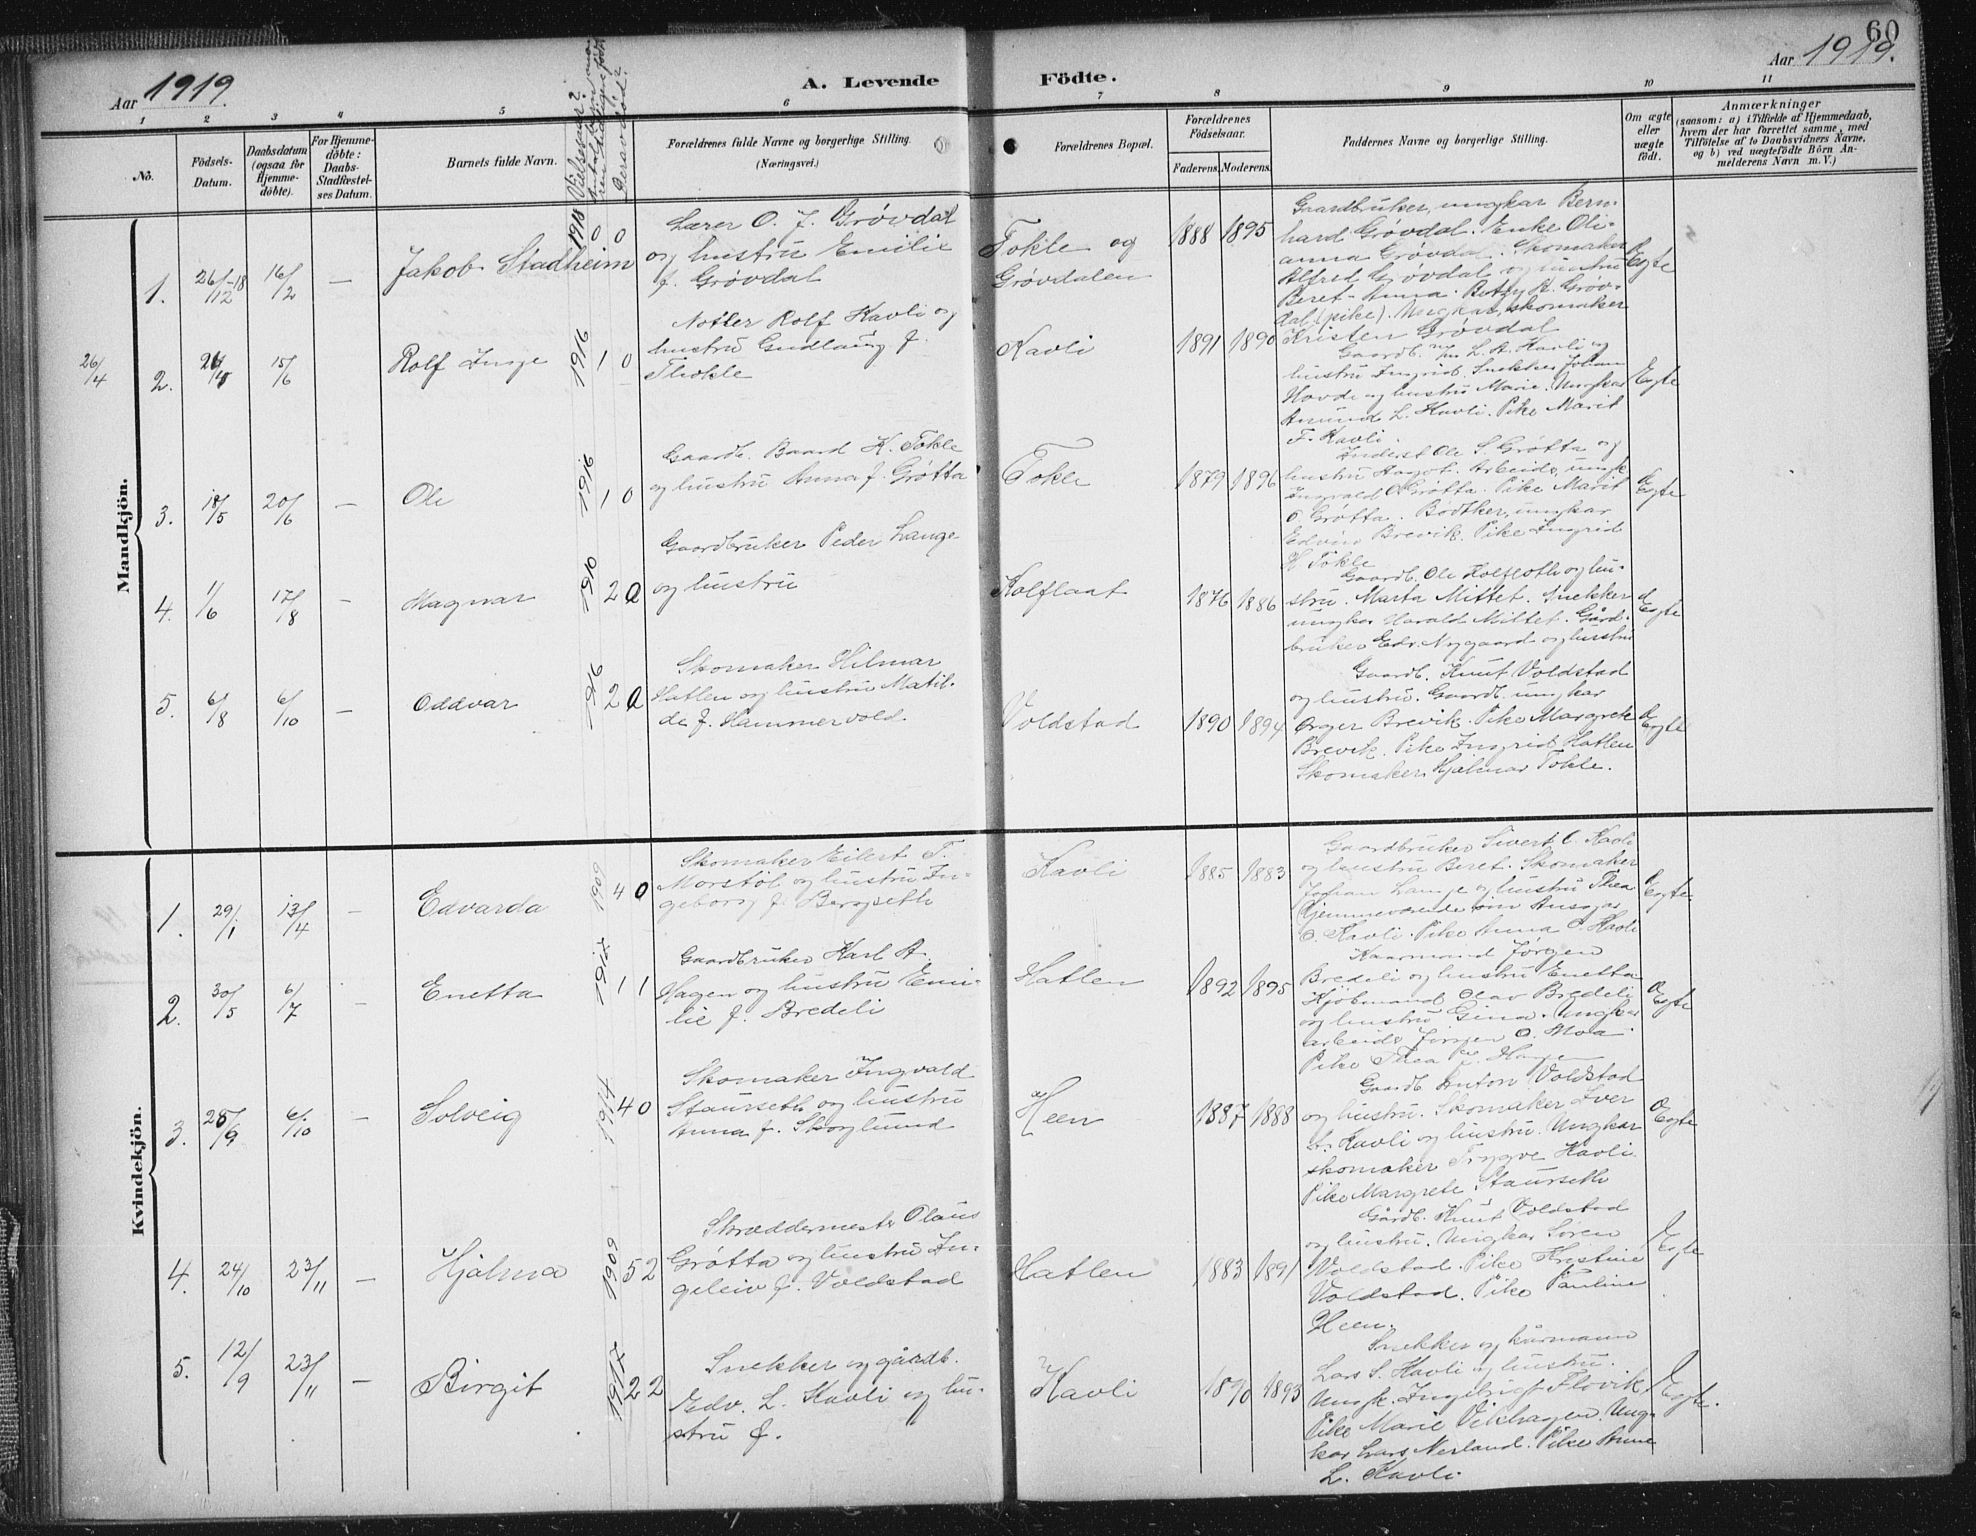 60
Aar 1919.
A. Levende Födte.
Aar 1919.
1 2 3 4 5 6 7 8 9 10 11
No.
Födsels-
Datum.
Daabsdatum
(ogsaa for
Hjemme-
döbte).
For Hjemme-
döbte:
Daabs-
Stadfæstel-
ses Datum.
Barnets fulde Navn.
Vielsesaar?
Derav död?
Forældrenes fulde Navne og borgerlige Stilling.
(Næringsvei.)
Forældrenes Bopæl.
Forældrenes
Födselsaar.
Faderens. Moderens.
Faddernes Navne og borgerlige Stilling.
Om ægte
eller
uægte
födt.
Anmærkninger
(saasom: a) i Tilfælde af Hjemmedaab,
hvem der har forrettet samme, med
Tilföielse af to Daabsvidners Navne,
og b) ved uægtefödte Börn An-
melderens Navn m. V.)
Mandkjön.
1. 26/12-18 16/2 — Jakob Stadheim 1918 0 0
Lærer O. J. Grøvdal
og hustru Emilie
f. Grøvdal
Tokle og
Grøvdalen
1888 1895
Gaardbruker, ungkar Bern-
hard Grøvdal. Enke Oli-
anna Grøvdal. Skomaker
Alfred Grøvdal og hustru
Beret-Anna. Betzy K. Grøv-
dal (pike). Ungkar, skomaker
Kristen Grøvdal
Ægte
26/4
2. 15/6 Rolf Inge 1916 1 0
Notler Rolf Kavli og
hustru Gudlaug f.
Thokle
Kavli
1891 1890
Gaardb. L. A. Kavli og
hustru Ingrid. Snekker Johan
Hovde og hustru Marie. Ungkar
Amund L. Kavli. Pike Marit
F. Kavli.
Ægte
3. 18/5 20/6 — Ole 1916 1 0
Gaardb. Baard K. Tokle
og hustru Anna f. Grøtta
Tokle
1879 1896
Inderst Ole S. Grøtta og
hustru Ragot. Arbeider, ungk.
Ingvald O. Grøtta. Pike Marit
O. Grøtta. Bødtker, ungkar
Edvin Brevik. Pike Ingrid
H. Tokle
Ægte
4. 1/6 17/8 — Magnar 1910 2 0
Gaardbruker Peder Lange
og hustru
Kolflaat
1876 1886
Gaardb. Ole Kolfloth og hu-
stru. Marta Mittet. Snekker
ungkar Harald Mittet. Gård-
bruker Edv. Nygaard og hustru
Ægte
5. 6/8 6/10 — Oddvar 1916 2 0
Skomaker Hilmar
Hatlen og hustru Matil-
de f. Hammervold.
Voldstad
1890 1894
Gaardb. Knut Voldstad
og hustru. Gaardb. ungkar
Brevik. Pike Margrete
Brevik. Pike Ingrid Hatlen
Skomaker Hjalmar Tokle.
Ægte
Kvindekjön.
1. 29/1 13/4 — Edvarda 1909 4 0
Skomaker Eilert T.
Morstøl og hustru In-
geborg f. Bergseth
Kavli
1885 1883
Gaardbruker Sivert O. Kavli
og hustru Beret. Skomaker
Johan Lange og hustru Thea
Hjemmeværende søn Ansgar
O. Kavli. Pike Anna O. Kavli
Ægte
2. 30/5 6/7 — Enetta 1 1
Gaardbruker Karl A.
Hagen og hustru Emi-
lie f. Bredeli
Hatlen
1892 1895
Kaarmand Jørgen
Bredeli og hustru Enetta
Kjøbmand Olav Bredeli
og hustru Gina. Ungkar
arbeider Jørgen O. Moa.
Pike Thea Hagen
Ægte
3. 25/9 6/10 — Solveig 1914 4 0
Skomaker Ingvald
Staurseth og hustru
Anna f. Skoglund
Heen
1887 1888
Gaardb. Anton Voldstad
og hustru. Skomaker Iver
A. Kavli og hustru. Ungkar
skomaker Trygve Kavli
Pike Margrete Staurseth
Ægte
4. 24/10 23/11 — Hjalma 1909 5 2
Skræddermester Olaus
Grøtta og hustru In-
geleiv f. Voldstad
Hatlen
1883 1891
Gårdb. Knut Voldstad
og hustru. Ungkar Søren
Voldstad. Pike Kristine
Voldstad. Pike Pauline
Heen.
Ægte
5. 12/9 23/11 — Birgit 1917 2 2
Snekker og gårdb.
Edv. L. Kavli og hu-
stru f.
Kavli
1890 1893
Snekker og kårmann
Lars S. Kavli og hustru.
Ungk. Ingebrigt Flovik,
Pike Marie Vikhagen. Ung-
kar Lars Nerland. Pike Anne
L. Kavli.
Ægte.